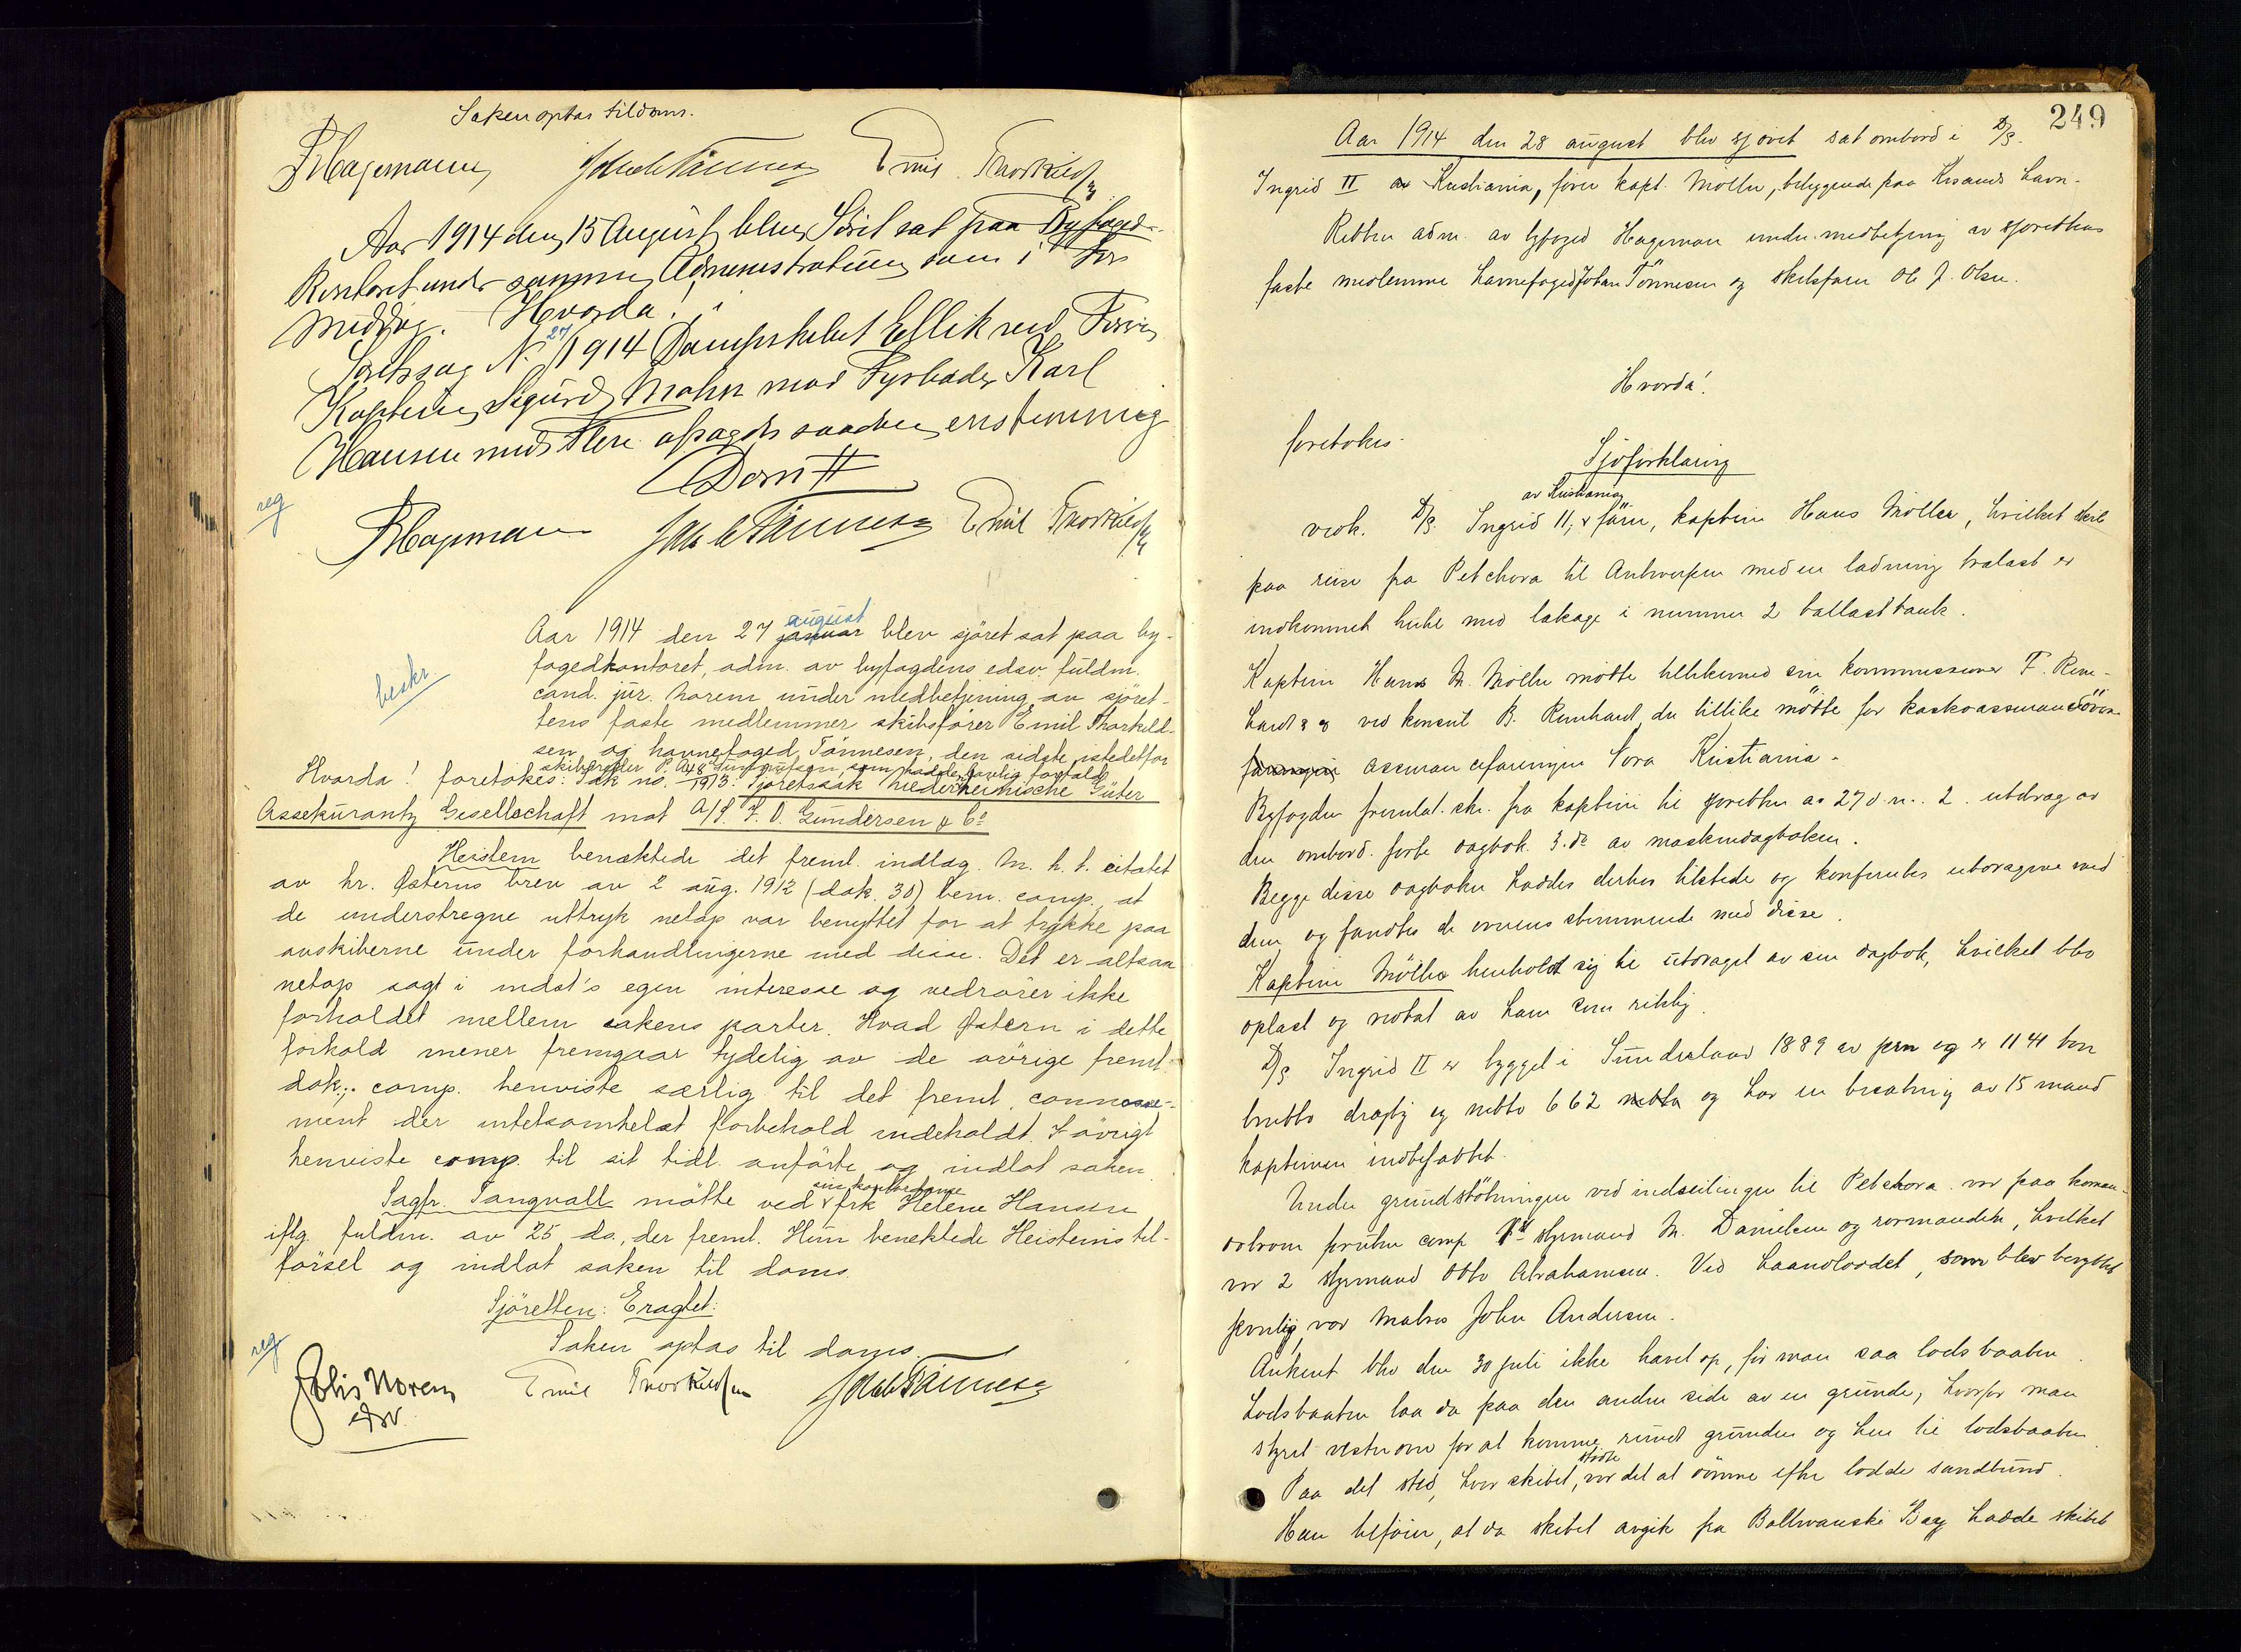 Saken optas til doms.
Hagemann Jakob Tönnesen Emil Thorkildsen
Aar 1914 den 15 August blev Söret sat paa Byfoged-
kontoret under samme Administration som i For
middag. Hvorda!
Söretssag N. 27/1914 Dampskibet Ellik ved Förer
Kaptein Sigurd Mohn mod Fyrböder Karl
Hansen med Flere afsagdes saadan enstemmig
Dom #
reg
Hagemann Jakob Tönnesen Emil Thorkildsen
Aar 1914 den 27 januar august blev sjöret sat paa by-
fogedkontoret, adm. av byfogdens edsv. fuldm.
beskr.
cand. jur. Norem under medbetjening av sjöret-
tens faste medlemmer skibsförer Emil Thorkild-
sen og havnefoged Tönnesen, den sidste istedetfor
skibsreder P. A. som hadde lovlig forfald
Hvorda! foretokes: Sak no. 48/1913. Sjöretssak Niederrheinische Güter
Assekurantz Gesellschaft mot A/S. J. O. Gundersen & Co
Heistein benæktede det freml. indlæg. M. h. t. citatet
av hr. Østerns brev av 2 aug. 1912 (dok. 30) bem. comp., at
de understregne uttryk netop var benyttet for at trykke paa
avskiberne under forhandlingerne med disse. Det er altsaa
netop sagt i indst's egen interesse og vedrörer ikke
forholdet mellem sakens parter. Hvad Østern i dette
forhold mener fremgaar tydelig av de övrige freml.
dok.; comp. henviste særlig til det freml. connosse-
ment der intetsomhelst forbehold indeholdt. I övrigt
henviste comp. til sit tidl. anförte og indlot saken
Sagfr. Tangvall mötte ved sin kontordame frk Helene Hansen
iflg. fuldm. av 25 ds., der freml. Hun benektede Heisteins til-
försel og indlot saken til doms.
Sjöretten: Eragtet:
Saken optas til doms.
reg
Johs Norem Emil Thorkildsen Jakob Tönnesen
edsv.
249
Aar 1914 den 28 august blev sjöret sat ombord i D/S.
Ingrid II av Kristiania, förer kapt. Möller, beliggende paa Krsands havn.
Retten adm. av byfoged Hageman under medbetjening av sjörettens
faste medlemme havnefoged Johan Tönnesen og skibsförer Ole J. Olsen.
Hvorda!
foretokes.
Sjöforklaring
vedk. D/S. Ingrid II, av Kristiania förer, kaptein Hans Möller, hvilket skib
paa reise fra Petchora til Antwerpen med en ladning trælast er
indkommet hertil med lækage i nummer 2 ballasttank.
Kaptein Hans M. Möller mötte tillikemed sin kommissioner F. Rein-
hardt ved konsul B. Reinhardt der tillike mötte for kaskoassurandören
assuranceforeningen Nora Kristiania.
Byfogden fremlat. skr. fra kaptein til sjöretten av 27 d. m. 2. utdrag av
den ombord förte dagbok. 3. do av maskindagboken.
Begge disse dagböker haddes derhos tilstede og konferertes utdragene med
dem og fandtes de overensstemmende med disse.
Kaptein Möller henholdt sig til utdraget av sin dagbok, hvilket blev
oplæst og vedtat av ham som riktig.
D/S Ingrid II er bygget i Sunderland 1889 av jern og er 1141 ton
brutto drægtig og netto 662 netto og har en besætning av 15 mand
kapteinen indbefattet.
Under grundstötningen ved indseilingen til Petchora var paa koman-
dobroen foruten comp 1st styrmand M. Danielsen og rormanden, hvilket
var 2 styrmand Otto Abrahamsen. Ved haandloddet, som blev benyttet
jevnlig, var Matros John Andersen.
Ankeret blev den 30 juli ikke hævet op, för man saa lodsbaaten.
Lodsbaaten laa da paa den anden side av en grunde, hvorfor man
styret vestenom for at komme rundt grunden og hen til lodsbaaten.
Paa det sted, hvor skibet stödte, var det at dömme efter loddet sandbund.
Han tilföier, at da skibet avgik fra Bollvanski Bay hadde skibet